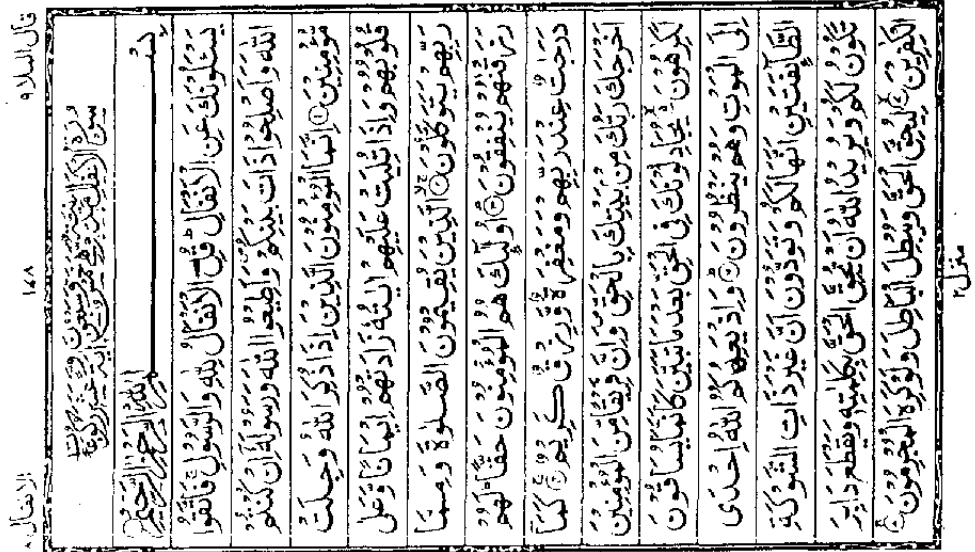 قال الملا ٩
الانفال ٨
بِسْمِ اللّٰهِ الرَّحْمٰنِ الرَّحِيْمِ
يَسْـَٔلُوْنَكَ عَنِ الْاَنْفَالِ ؕ قُلِ الْاَنْفَالُ لِلّٰهِ وَالرَّسُوْلِ ۚ فَاتَّقُوا
اللّٰهَ وَاَصْلِحُوْا ذَاتَ بَيْنِكُمْ ۪ وَاَطِيْعُوا اللّٰهَ وَرَسُوْلَهٗۤ اِنْ كُنْتُمْ
مُّؤْمِنِيْنَ ۝ اِنَّمَا الْمُؤْمِنُوْنَ الَّذِيْنَ اِذَا ذُكِرَ اللّٰهُ وَجِلَتْ
قُلُوْبُهُمْ وَاِذَا تُلِيَتْ عَلَيْهِمْ اٰيٰتُهٗ زَادَتْهُمْ اِيْمَانًا وَّعَلٰى
رَبِّهِمْ يَتَوَكَّلُوْنَ ۝ الَّذِيْنَ يُقِيْمُوْنَ الصَّلٰوةَ وَمِمَّا
رَزَقْنٰهُمْ يُنْفِقُوْنَ ۝ اُولٰٓئِكَ هُمُ الْمُؤْمِنُوْنَ حَقًّا ؕ لَهُمْ
دَرَجٰتٌ عِنْدَ رَبِّهِمْ وَمَغْفِرَةٌ وَّرِزْقٌ كَرِيْمٌ ۝ كَمَاۤ
اَخْرَجَكَ رَبُّكَ مِنْۢ بَيْتِكَ بِالْحَقِّ ۪ وَاِنَّ فَرِيْقًا مِّنَ الْمُؤْمِنِيْنَ
لَكٰرِهُوْنَ ۝ يُجَادِلُوْنَكَ فِى الْحَقِّ بَعْدَ مَا تَبَيَّنَ كَاَنَّمَا يُسَاقُوْنَ
اِلَى الْمَوْتِ وَهُمْ يَنْظُرُوْنَ ۝ وَاِذْ يَعِدُكُمُ اللّٰهُ اِحْدَى
الطَّآئِفَتَيْنِ اَنَّهَا لَكُمْ وَتَوَدُّوْنَ اَنَّ غَيْرَ ذَاتِ الشَّوْكَةِ
تَكُوْنُ لَكُمْ وَيُرِيْدُ اللّٰهُ اَنْ يُّحِقَّ الْحَقَّ بِكَلِمٰتِهٖ وَيَقْطَعَ دَابِرَ
الْكٰفِرِيْنَ ۝ لِيُحِقَّ الْحَقَّ وَيُبْطِلَ الْبَاطِلَ وَلَوْ كَرِهَ الْمُجْرِمُوْنَ ۝
منزل ٢